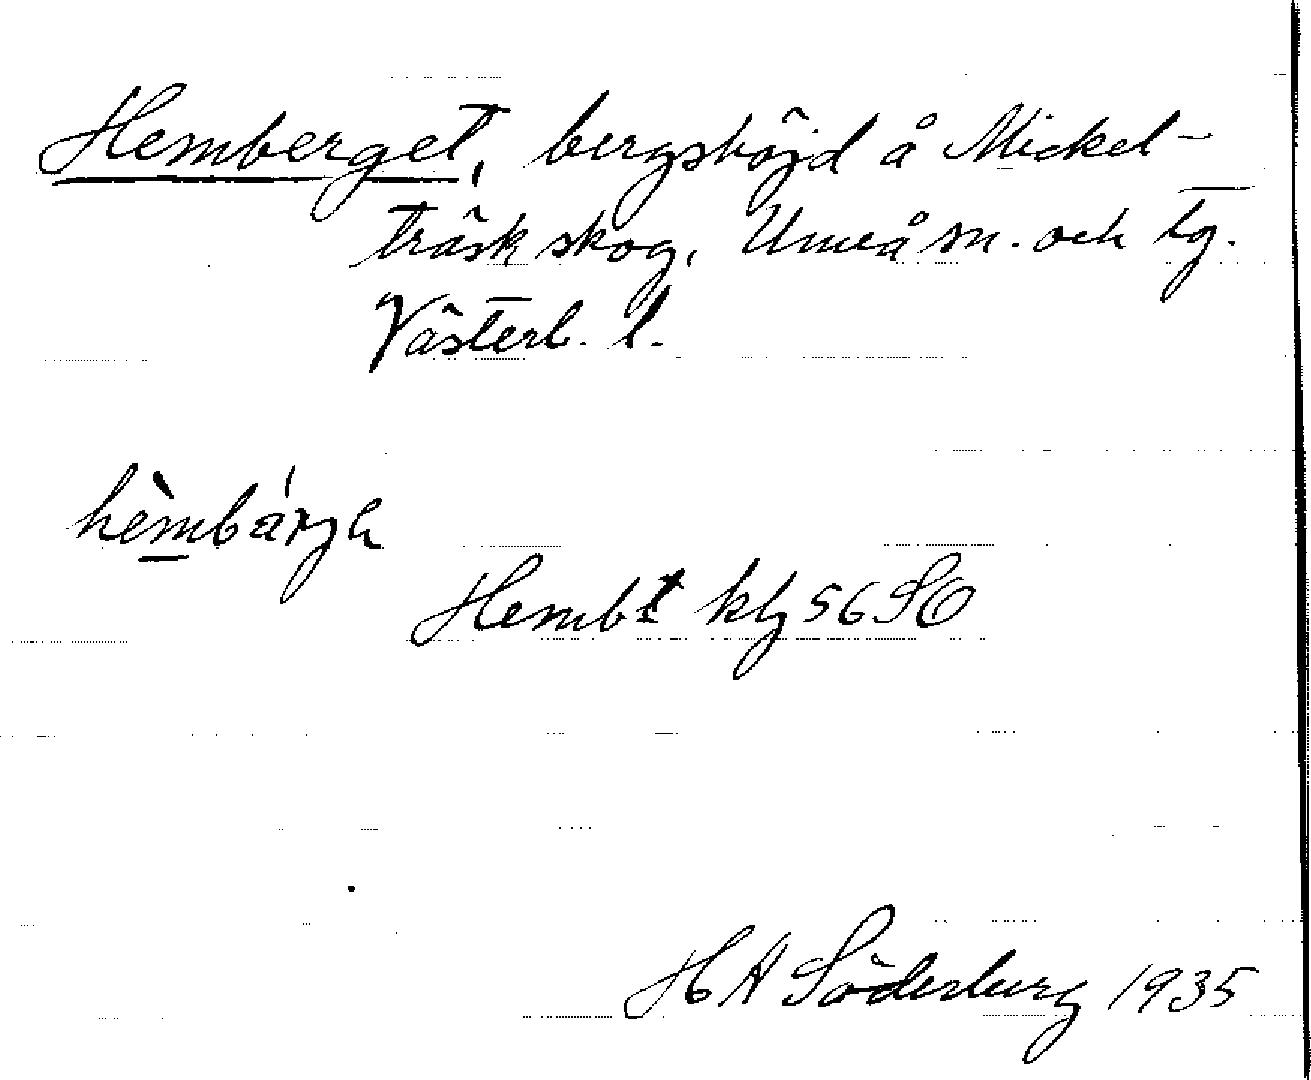 Hemberget, bergshöjd å Mickel-
träsk skog, Umeå sn. och tg.
Västerb. l.
hèmbárjh
Hembt kbg 56 SO
H A Söderburg 1935